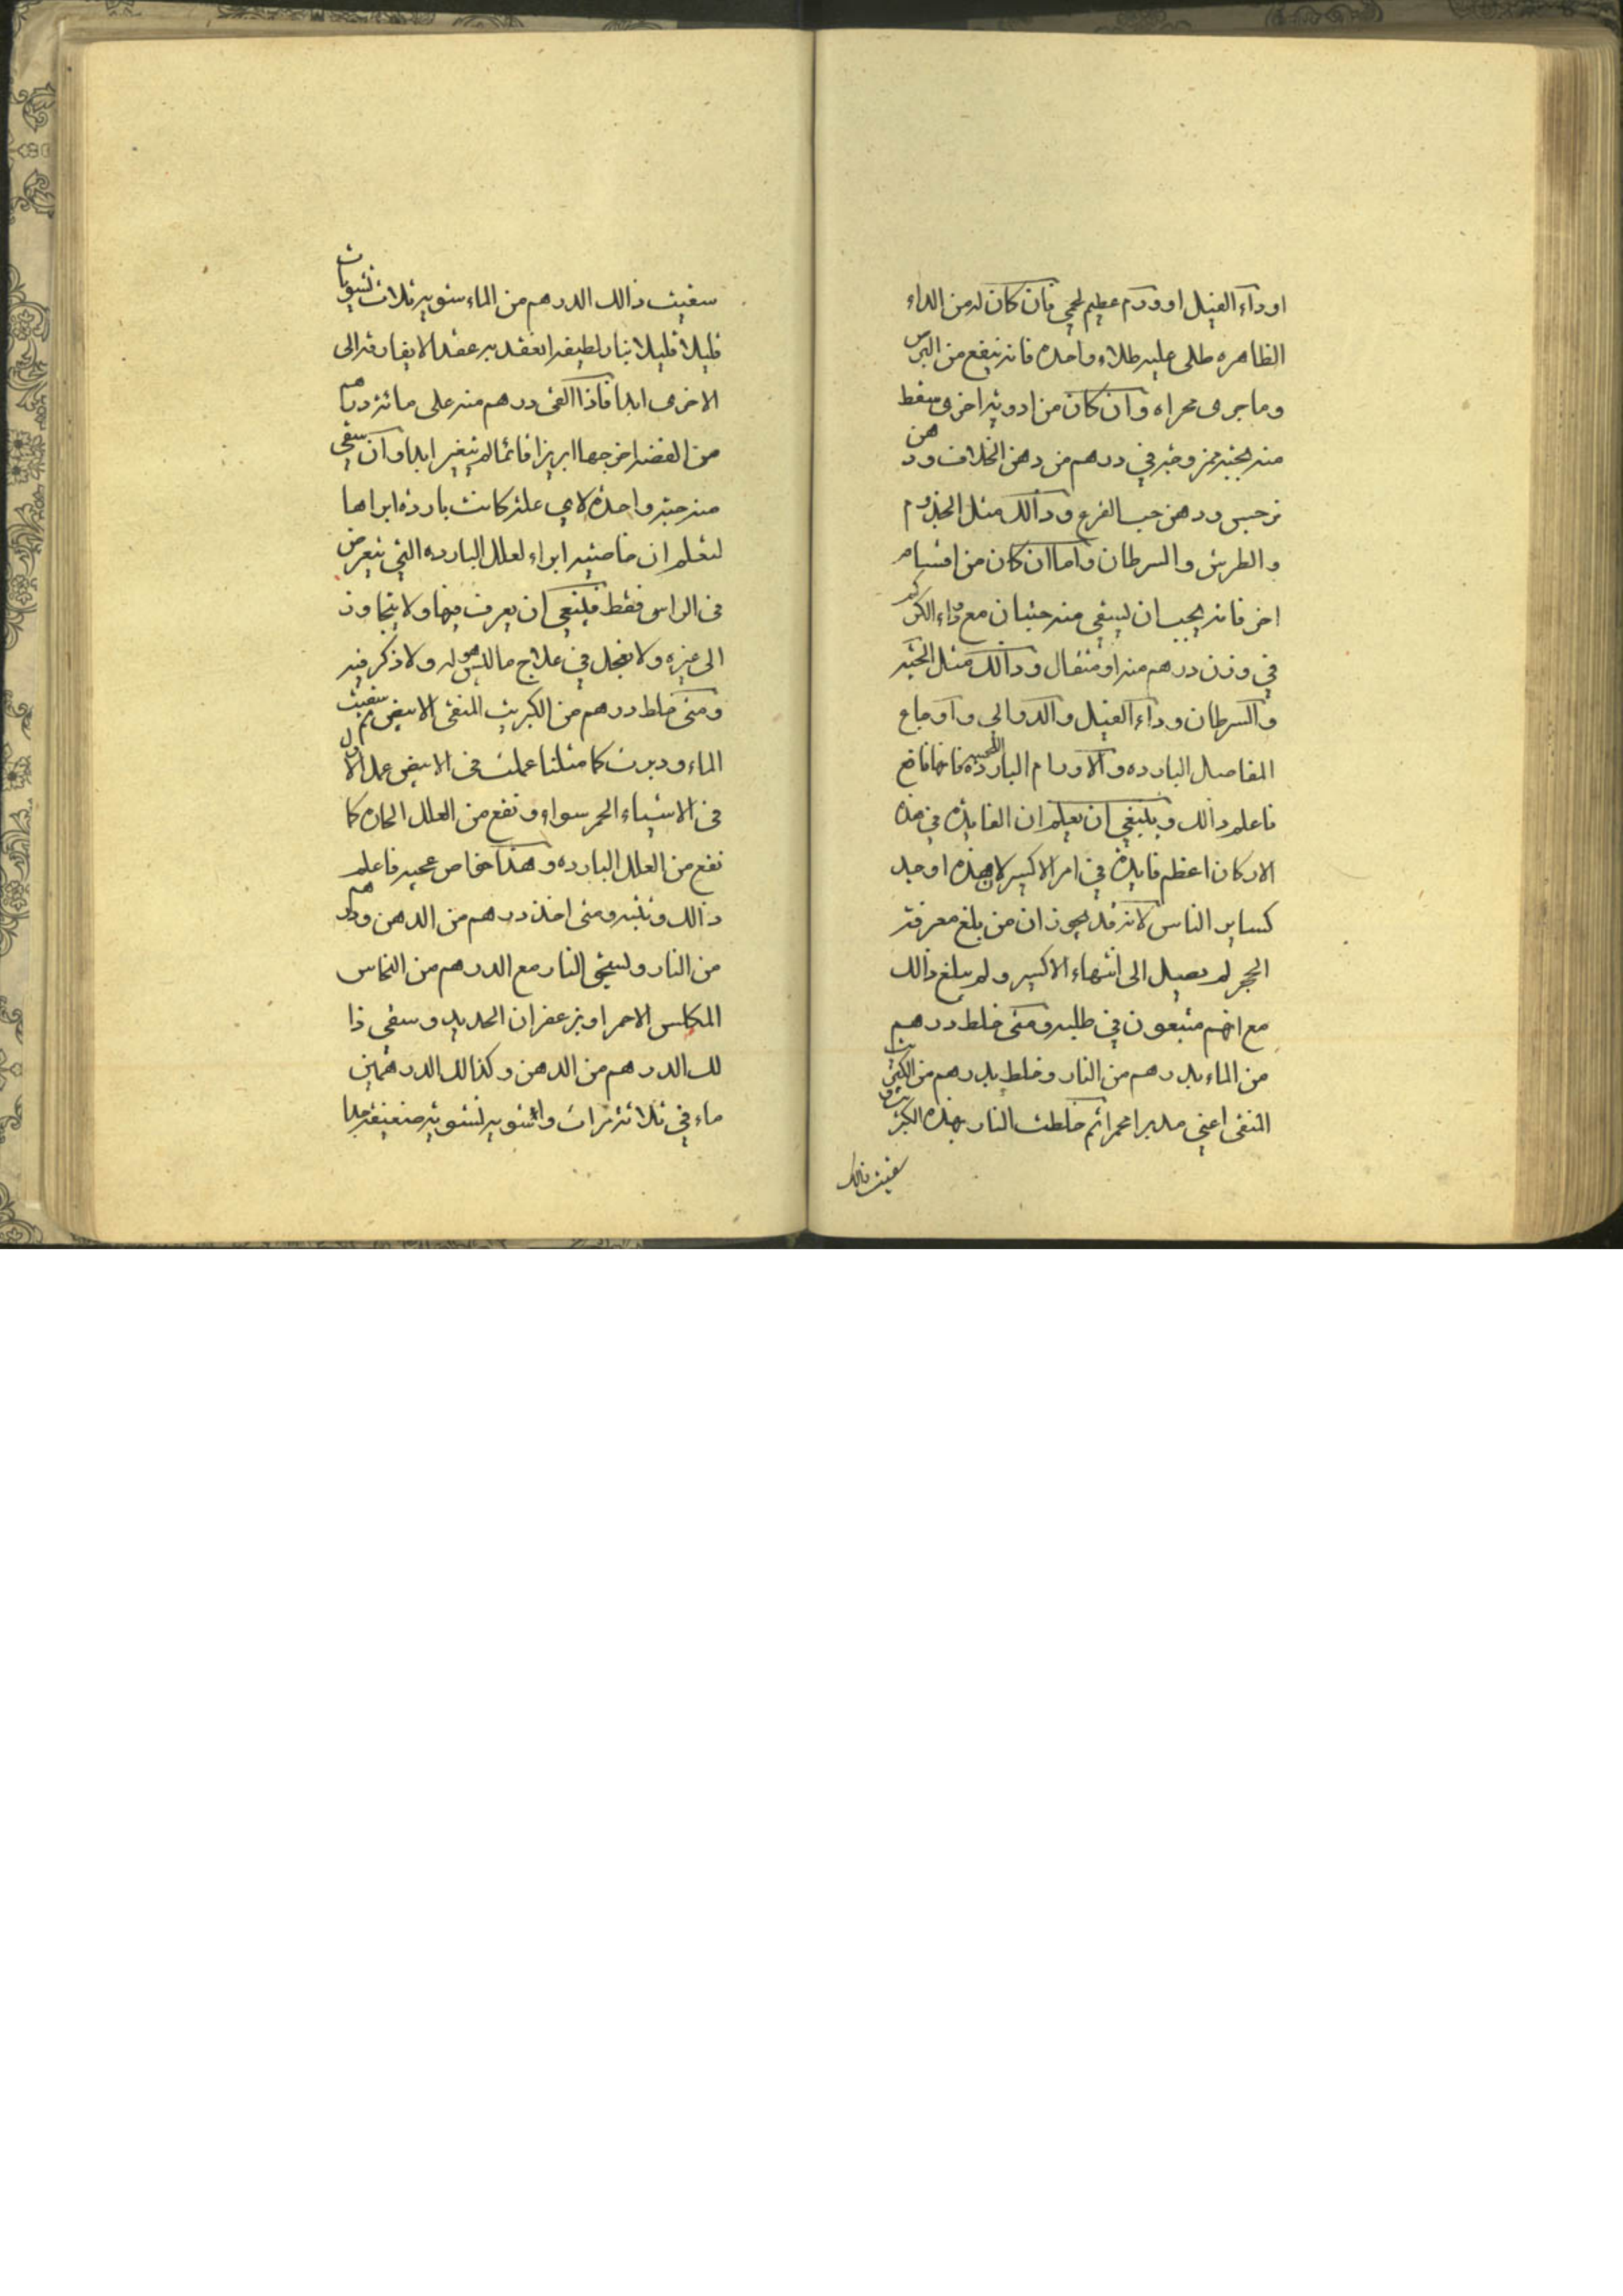 او داء الفيل او ورم عظيم لحمي فان كان له من الداء
الظاهره طلى عليه طلاء واحده فانه ينفع من البرص
وما جرى مجراه وان كان من ادويه اخرى سقط
منه بحبه ممزوجه في درهم من دهن الخلاف ودهن
نرجس ودهن حب القرع وذالك مثل الجذوم
والطرش والسرطان واما ان كان من اقسام
اخر فانه يجب ان يسقى منه حبتان مع ماء الكركند
في وزن درهم منه او مثقال وذالك مثل الحبه
والسرطان وداء الفيل والدوالي واوجاع
المفاصل البارده والاورام البارده اللحميه فانها نافع
فاعلم ذالك وينبغي ان يعلم ان الفايده في هذه
الاركان اعظم فايده في امر الاكسير لا هذه اوجد
كساير الناس لانه قد يجوز ان من بلغ معرفة
الحجر لم يصل الى انتهاء الاكسير ولم يبلغ ذالك
مع انهم متبعون في طلبه ومتى خلط درهم
من الماء بدرهم من النار وخلط بدرهم من الكبريت
المنقى اعني مدبرا محمرا ثم خلطت النار بهذه الكبريت و
سقيت ذالك
سقيت ذالك الدرهم من الماء شويه ثلاث تشويات
قليلا قليلا بنار لطيفه انعقد به عقدا لا يفارقه الى
الاخرى ابدا فاذا القى درهم منه على مائة درهم
من الفضه اخرجها ابريزا قائما لم يتغير ابدا وان سقي
منه حبه واحدة لاي علة كانت باردة ابراها
ليعلم ان خاصيته ابراء لعلل البارده التي يتعرض
في الراس فقط فلينبغى ان يعرف فيها ولا يتجاوز
الى غيره ولا يعجل في علاج ما ليس هو له ولا ذكر فيه
ومتى خلط درهم من الكبريت المنقى الابيض ثم سقيت
الماء ودبرت كما مثلنا عملت في الابيض عمل الاول
في الاشياء الحمر سواء ونفع من العلل الحاره كما
نفع من العلل البارده وهذا خاص عجيب فاعلم
ذالك وتنبه ومتى اخذ درهم من الدهن ودرهم
من النار وليسحق النار مع الدرهم من النحاس
المكلس الاحمر او بزعفران الحديد وسقى ذا
لك الدرهم من الدهن وكذالك الدرهمين
ماء في ثلاثة مرات واشويه تشويه ضعيفة جدا